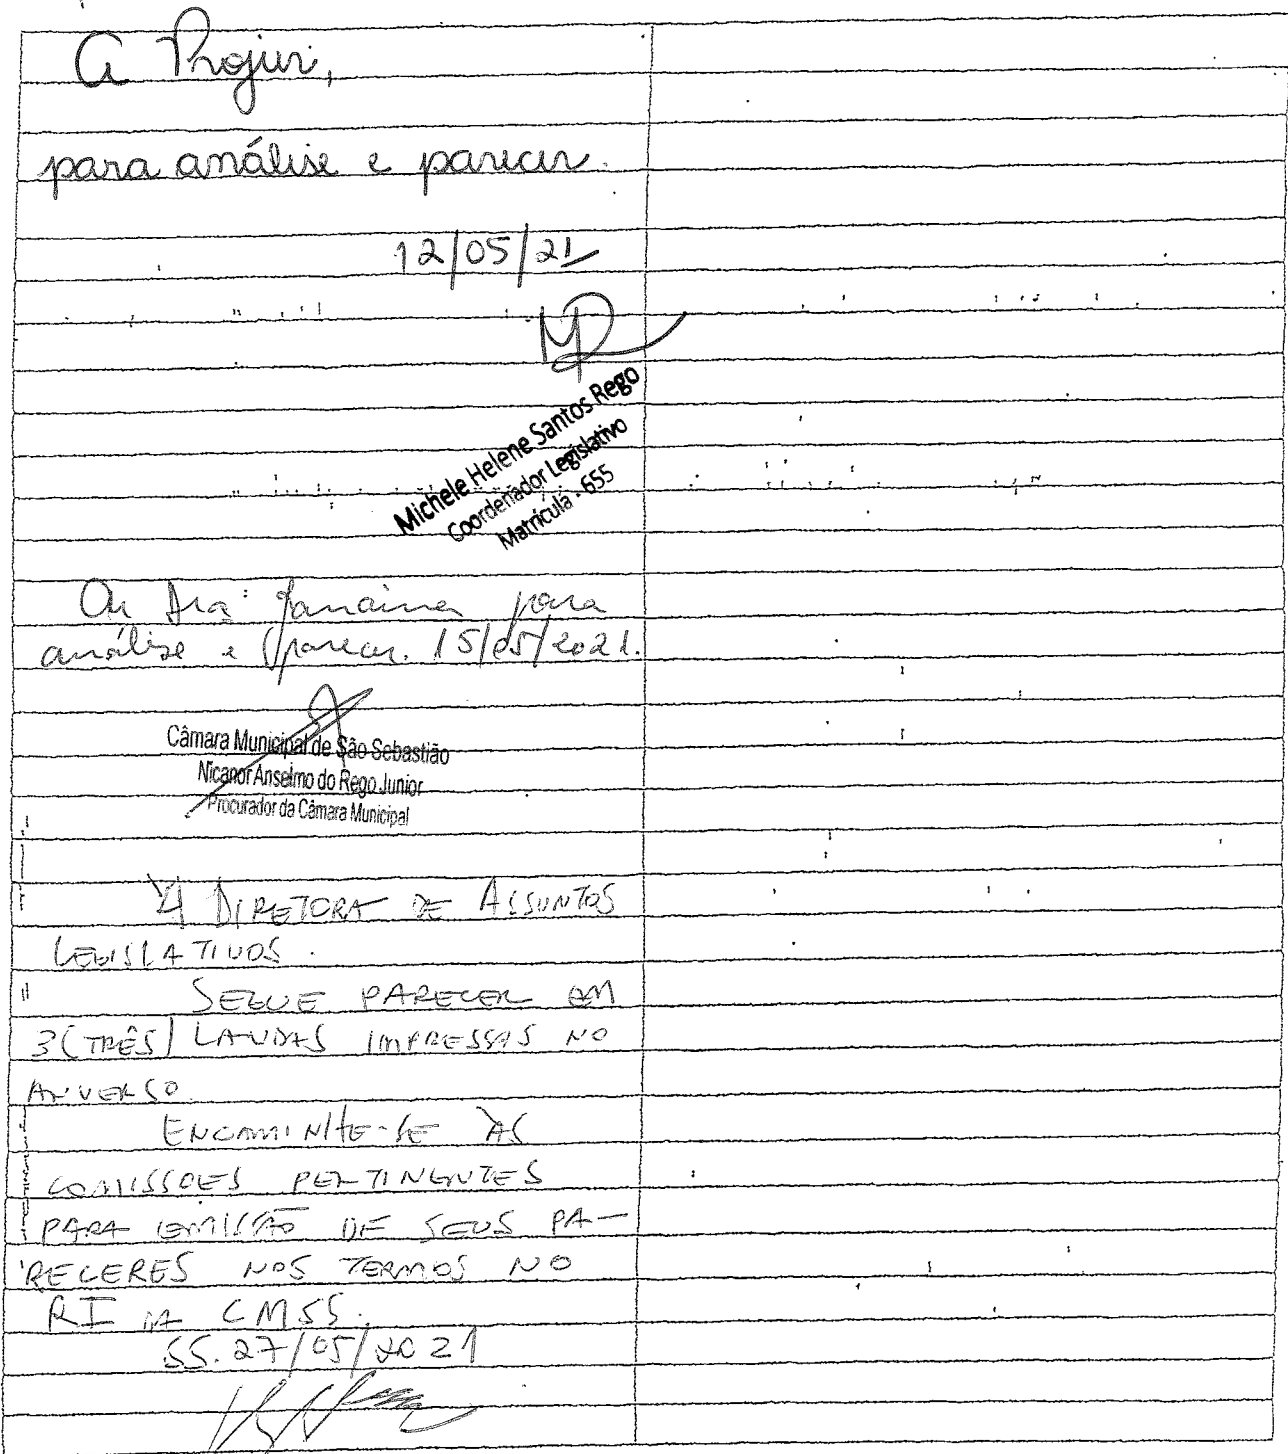 A Projur,
para análise e parecer.
12/05/21
Michele Helene Santos Rego
Coordenador Legislativo
Matrícula - 655
Dra Janaina para
análise e parecer. 15/05/2021.
Câmara Municipal de São Sebastião
Nicanor Anselmo do Rego Junior
Procurador da Câmara Municipal
À DIRETORA DE ASSUNTOS
LEGISLATIVOS.
SEGUE PARECER EM
3 (TRÊS) LAUDAS IMPRESSAS NO
ANVERSO
ENCAMINHE-SE ÀS
COMISSOES PERTINENTES
PARA EMISSÃO DE SEUS PA-
RECERES NOS TERMOS NO
RI DA CMSS.
SS. 27/05/2021